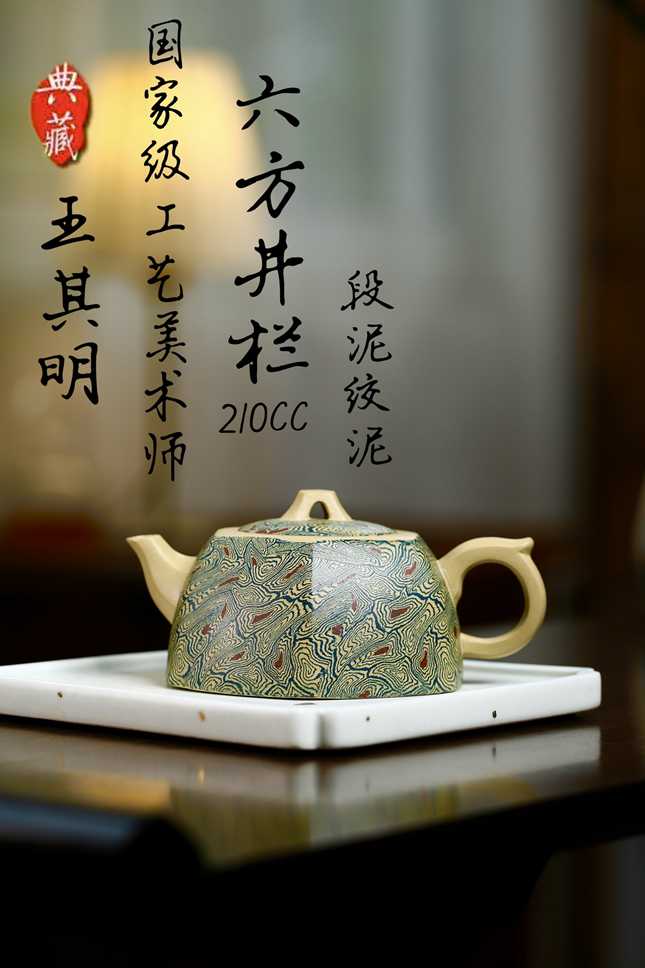 六方井栏
210CC
段泥绞泥
国家级工艺美术师
王其明
典藏